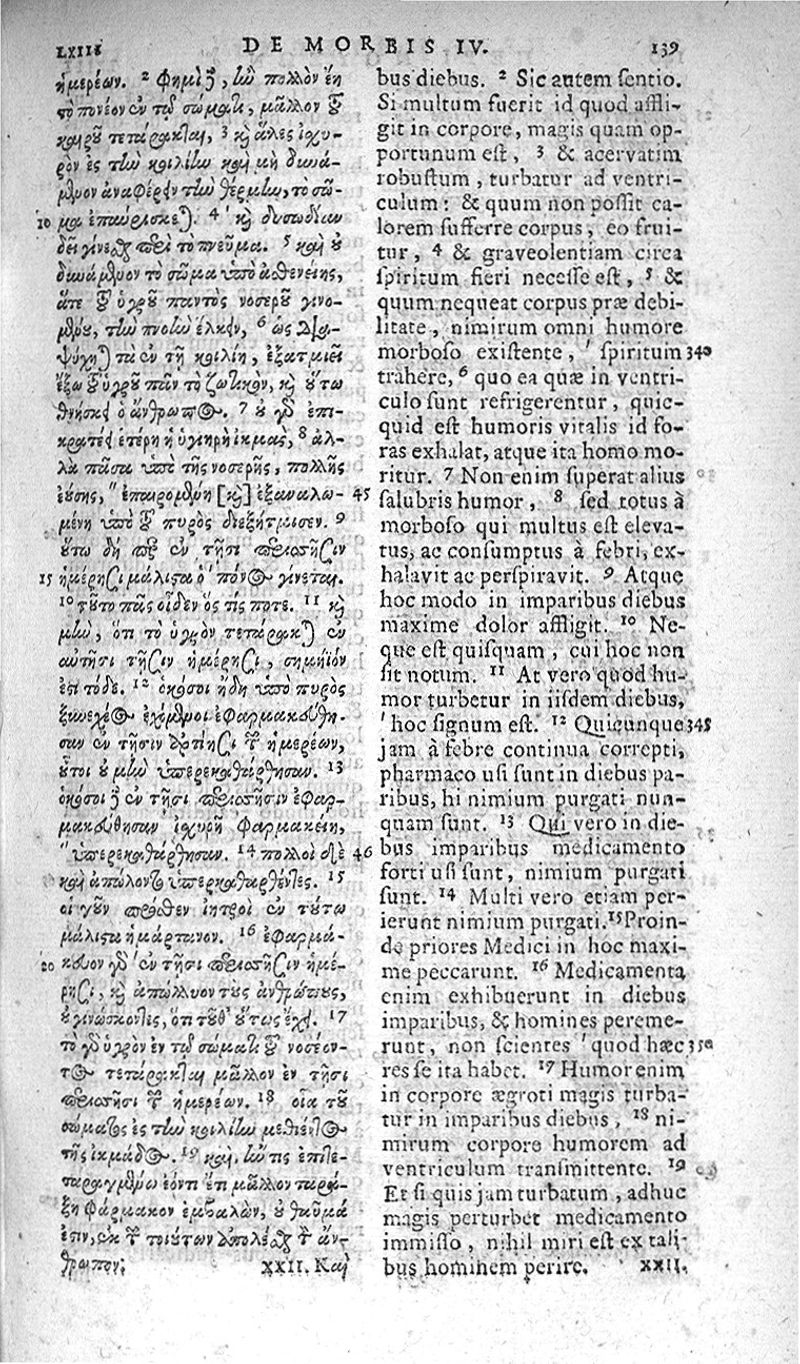 LXIII DE MORBIS IV. 139
ἡμερέων. 2 Φημὶ δὲ, ἢν πολλὸν ἔῃ
τὸ πονέον ἐν τῷ σώματι, μᾶλλον τοῦ
καιροῦ τετάρακται, 3 καὶ ἁλὲς ἰσχυ-
ρὸν ἐς τὴν κοιλίην καὶ μὴ δυνά-
μενον ἀναφέρειν τὴν θέρμην, τὸ σῶ-
10 μα ἐπαυρίσκεται. 4 ' καὶ δυσωδίην
δεῖ γίνεσθαι περὶ τὸ πνεῦμα. 5 καὶ οὐ
δυνάμενον τὸ σῶμα ὑπὸ ἀσθενείης,
ἅτε τοῦ ὑγροῦ παντὸς νοσεροῦ γινο-
μένου, τὴν πνοὴν ἕλκειν, 6 ὡς
ψύχηται τὰ ἐν τῇ κοιλίῃ, ἐξατμιεῖ
ἔξω τοῦ ὑγροῦ πᾶν τὸ ζωτικὸν, καὶ οὕτω
θνήσκει ὁ ἄνθρωπος. 7 οὐ γὰρ ἐπι-
κρατέει ἑτέρη ἡ ὑγιηρὴ ἰκμὰς, 8 ἀλ-
λὰ πᾶσα ὑπὸ τῆς νοσερῆς, πολλῆς
ἐούσης, " ἐπαιρομένη [καὶ] ἐξαναλω- 45
μένη ὑπὸ τοῦ πυρὸς διεξήτμισεν. 9
οὕτω δὴ ἐν τῇσι περισσῇσιν
15 ἡμέρῃσι μάλιστα ὁ πόνος γίνεται.
10 τοῦτο πᾶς οἶδεν ὅς τίς ποτε. 11 καὶ
μὴν, ὅτι τὸ ὑγρὸν τετάρακται ἐν
αὐτῇσι τῇσιν ἡμέρῃσι, σημήϊόν
ἐστι τόδε. 12 ὁκόσοι ἤδη ὑπὸ πυρὸς
ξυνεχέος ἐχόμενοι ἐφαρμακεύθη-
σαν ἐν τῇσιν ἀρτίῃσι τῶν ἡμερέων,
οὗτοι οὐ μὴν ὑπερεκαθάρθησαν. 13
ὁκόσοι δὲ ἐν τῇσι περισσῇσιν ἐφαρ-
μακεύθησαν ἰσχυρῇ φαρμακείῃ,
" ὑπερεκαθάρθησαν. 14 πολλοὶ δὲ 46
καὶ ἀπώλοντο ὑπερκαθαρθέντες. 15
οἱ γοῦν πρόσθεν ἰητροὶ ἐν τούτῳ
μάλιστα ἡμάρτανον. 16 ἐφαρμά-
20 κευον γὰρ ' ἐν τῇσι περισσῇσιν ἡμέ-
ρῃσι, καὶ ἀπώλλυον τοὺς ἀνθρώπους,
οὐ γινώσκοντες, ὅτι τοῦθ' οὕτως ἔχει. 17
τὸ γὰρ ὑγρὸν ἐν τῷ σώματι τοῦ νοσέον-
τος τετάρακται μᾶλλον ἐν τῇσι
περισσῇσι τῶν ἡμερέων. 18 οἷα τοῦ
σώματος ἐς τὴν κοιλίην μεθιέντος
τῆς ἰκμάδος. 19 καὶ, ἤν τις ἐπιτε-
ταραγμένῳ ἐόντι ἔτι μᾶλλον ταρά-
ξῃ φάρμακον ἐμβαλὼν, οὐ θαῦμά
ἐστιν, ἐκ τῶν τοιούτων ἀπολέσθαι τὸν ἄν-
θρωπον. XXII. Καὶ
bus diebus. 2 Sic autem sentio.
Si multum fuerit id quod affli-
git in corpore, magis quam op-
portunum est, 3 & acervatim
robustum, turbatur ad ventri-
culum: & quum non possit ca-
lorem sufferre corpus, eo frui-
tur, 4 & graveolentiam circa
spiritum fieri necesse est, 5 &
quum nequeat corpus præ debi-
litate, nimirum omni humore
morboso existente, ' spiritum 340
trahere, 6 quo ea quæ in ventri-
culo sunt refrigerentur, quic-
quid est humoris vitalis id fo-
ras exhalat, atque ita homo mo-
ritur. 7 Non enim superat alius
salubris humor, 8 sed totus à
morboso qui multus est eleva-
tus, ac consumptus à febri, ex-
halavit ac perspiravit. 9 Atque
hoc modo in imparibus diebus
maxime dolor affligit. 10 Ne-
que est quisquam, cui hoc non
sit notum. 11 At vero quod hu-
mor turbetur in iisdem diebus,
' hoc signum est. 12 Quicunque 345
jam à febre continua correpti,
pharmaco usi sunt in diebus pa-
ribus, hi nimium purgati nun-
quam sunt. 13 Qui vero in die-
bus imparibus medicamento
forti usi sunt, nimium purgati
sunt. 14 Multi vero etiam per-
ierunt nimium purgati. 15 Proin-
de priores Medici in hoc maxi-
me peccarunt. 16 Medicamenta
enim exhibuerunt in diebus
imparibus, & homines pereme-
runt, non scientes ' quod hæc 350
res se ita habet. 17 Humor enim
in corpore ægroti magis turba-
tur in imparibus diebus, 18 ni-
mirum corpore humorem ad
ventriculum transmittente. 19
Et si quis jam turbatum, adhuc
magis perturbet medicamento
immisso, nihil miri est ex tali-
bus hominem perire. XXII.